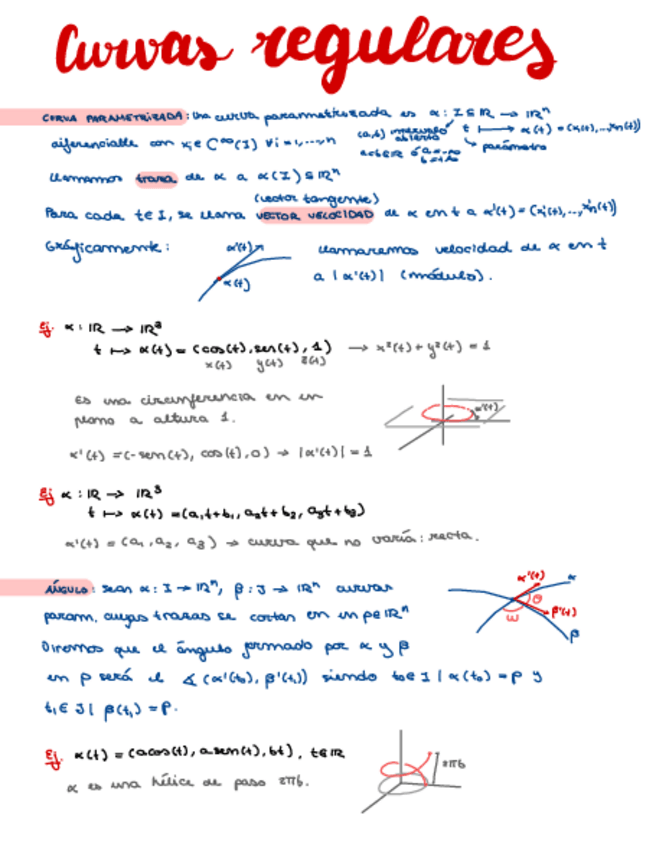 Curvas regulares
CURVA PARAMETRIZADA: Una curva parametrizada es α: I ⊆ ℝ → ℝⁿ
t ⟼ α(t) = (x₁(t),...,xₙ(t))
(a,b) intervalo abierto
parámetro
diferenciable con xᵢ ∈ C^∞(I) ∀i = 1,...,n
Llamamos traza de α a α(I) ⊆ ℝⁿ
(vector tangente)
Para cada t ∈ I, se llama VECTOR VELOCIDAD de α en t a α'(t) = (x₁'(t),...,xₙ'(t))
Gráficamente:
α'(t)
α(t)
llamaremos velocidad de α en t
a |α'(t)| (módulo).
Ej. α: ℝ → ℝ³
t ↦ α(t) = (cos(t), sen(t), 1) → x²(t) + y²(t) = 1
x(t) y(t) z(t)
Es una circunferencia en un
plano a altura 1.
α'(t)
α'(t) = (-sen(t), cos(t), 0) → |α'(t)| = 1
Ej α: ℝ → ℝ³
t ↦ α(t) = (a₁t+b₁, a₂t+b₂, a₃t+b₃)
α'(t) = (a₁, a₂, a₃) → curva que no varía: recta.
ÁNGULO: sean α: I → ℝⁿ, β: J → ℝⁿ curvas
param. cuyas trazas se cortan en un p∈ℝⁿ
Diremos que el ángulo formado por α y β
en p será el ∡(α'(t₀), β'(t₁)) siendo t₀∈I | α(t₀) = p y
t₁∈J | β(t₁) = p.
α'(t)
α
θ
β'(t)
ω
β
Ej. α(t) = (acos(t), asen(t), bt), t∈ℝ
α es una hélice de paso 2πb.
2πb